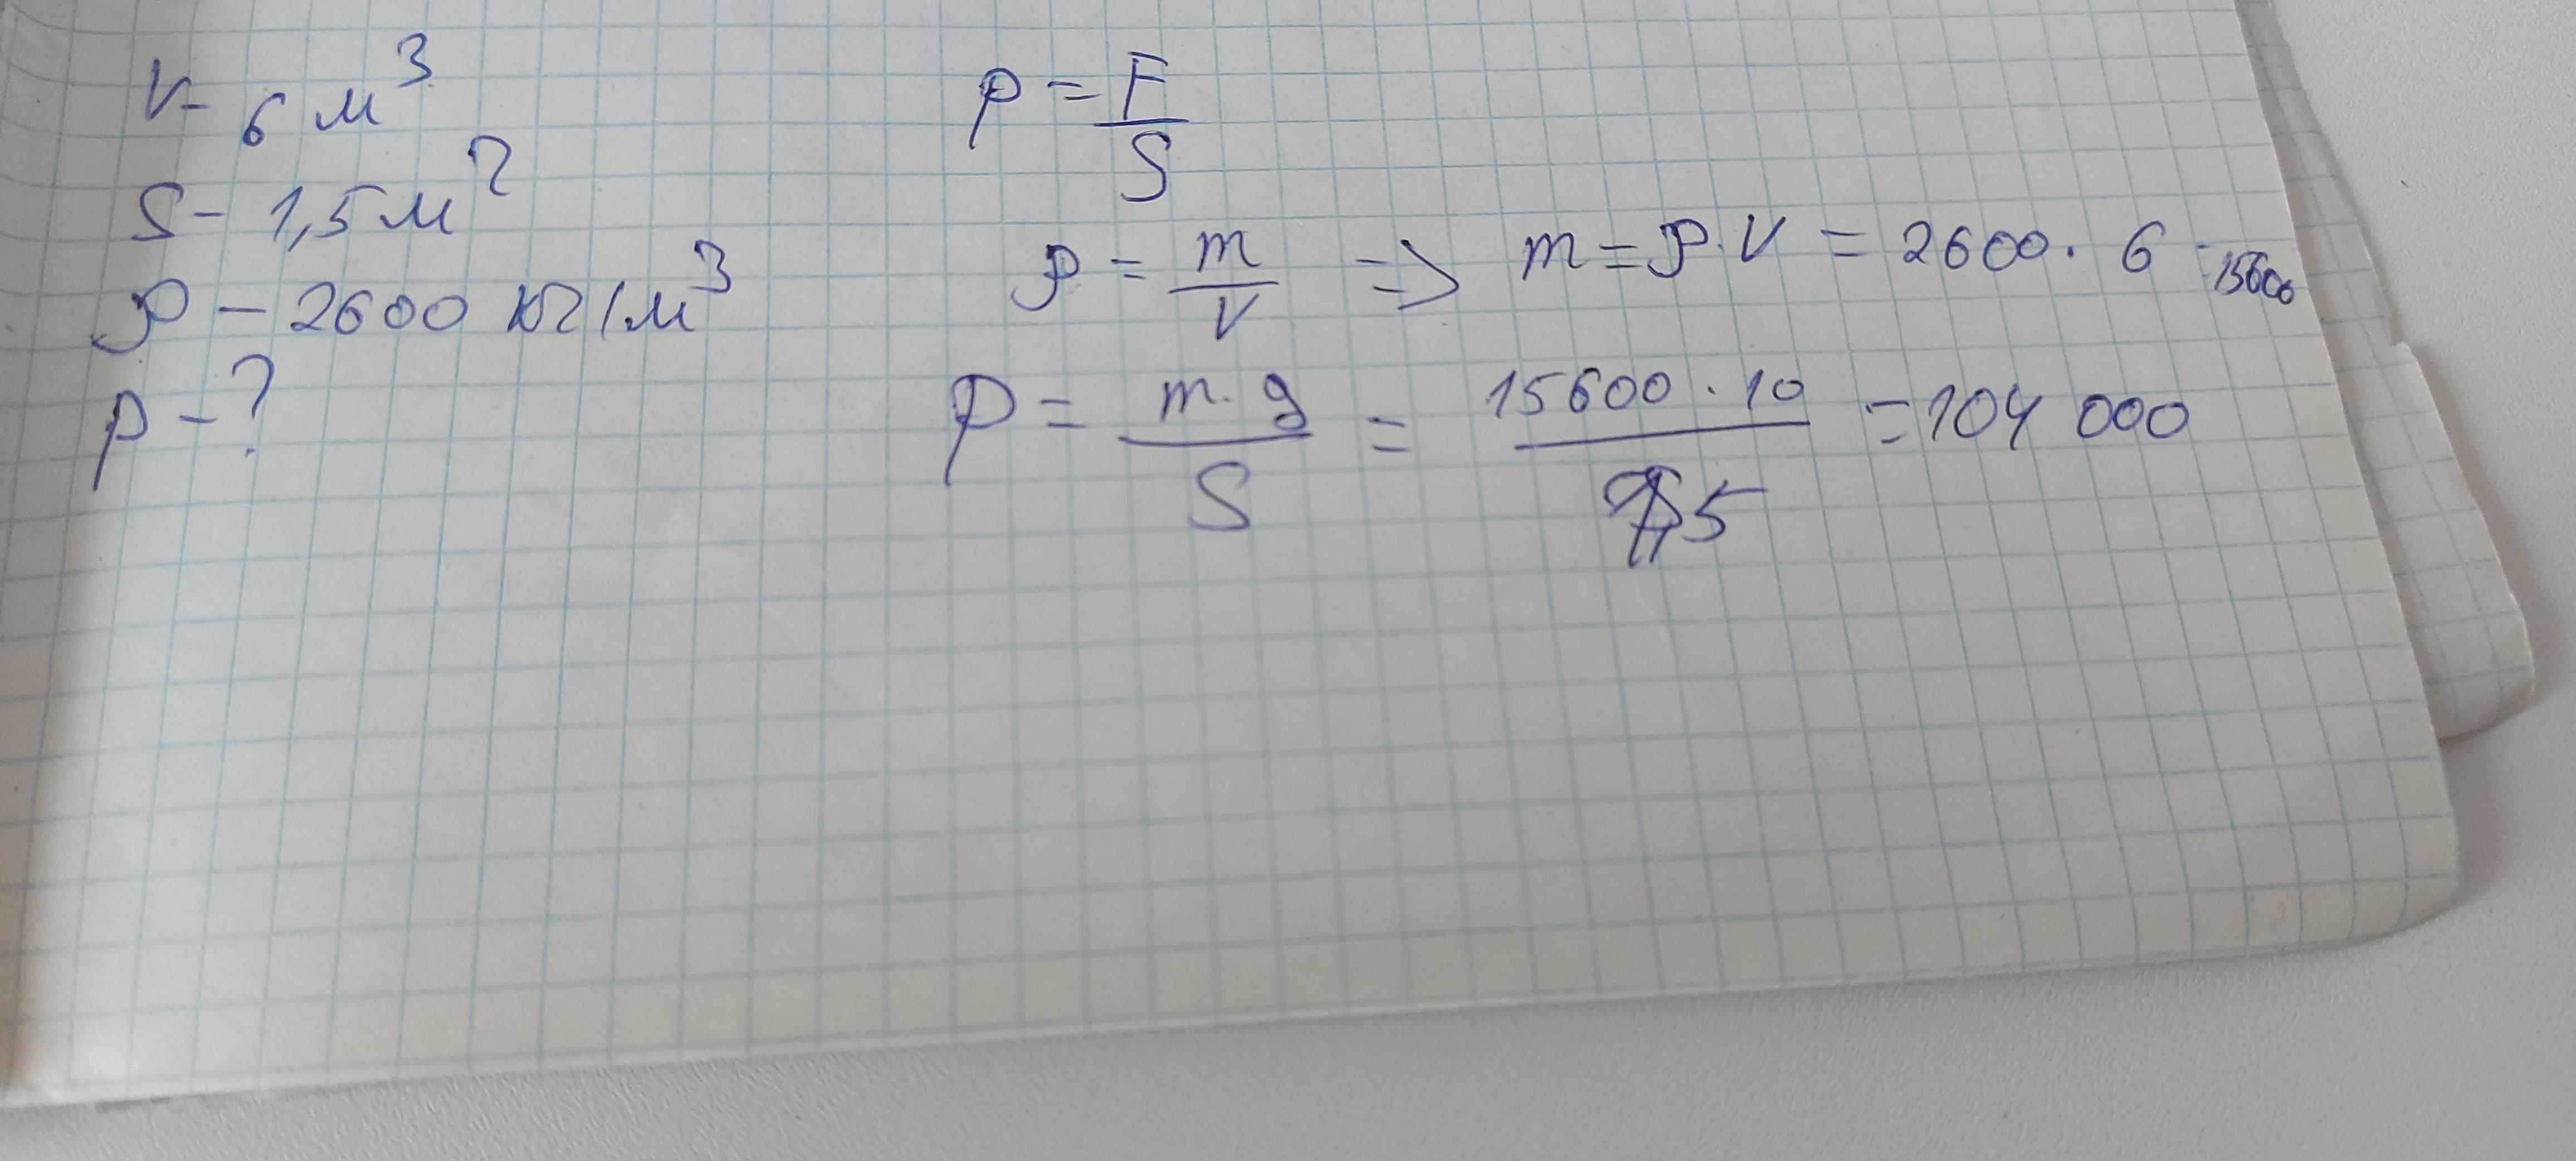 V- 6 м³
S- 1,5 м²
ρ - 2600 кг/м³
p - ?
p = F/S
ρ = m/V => m = ρ·V = 2600 · 6 - 15600
p = m·g/S = 15600 · 10/1,5 = 104 000